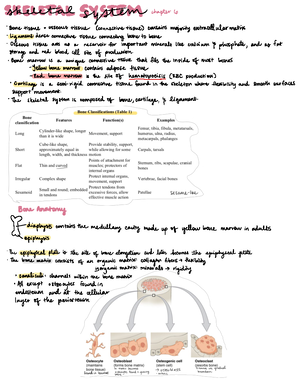 skeletal system chapter 6
· Bone tissue - osseous tissue (connective tissue) contains majority extracellular matrix
· Ligament: dense connective tissue connecting bone to bone
· Osseous tissue acts as a reservoir for important minerals like calcium & phosphate, and as fat
storage and red blood cell site of production
· Bone marrow is a unique connective tissue that fills the inside of most bones
· Yellow bone marrow contains adipose tissue
· Red bone marrow is the site of hematopoiesis (RBC production)
· Cartilage is a semi-rigid connective tissue found in the skeleton where flexibility and smooth surfaces
support movement
· The skeletal system is composed of bone, cartilage, & ligaments
Bone Classifications (Table 1)
Bone classification Features Function(s) Examples
Long Cylinder-like shape, longer than it is wide Movement, support Femur, tibia, fibula, metatarsals, humerus, ulna, radius, metacarpals, phalanges
Short Cube-like shape, approximately equal in length, width, and thickness Provide stability, support, while allowing for some motion Carpals, tarsals
Flat Thin and curved Points of attachment for muscles; protectors of internal organs Sternum, ribs, scapulae, cranial bones
Irregular Complex shape Protect internal organs, movement, support Vertebrae, facial bones
Sesamoid Small and round; embedded in tendons Protect tendons from excessive forces, allow effective muscle action Patellae
Bone Anatomy
diaphysis contains the medullary cavity made up of yellow bone marrow in adults
epiphysis
· The epiphyseal plate is the site of bone elongation and later becomes the epiphyseal
· The bone matrix consists of an organic matrix: collagen fibers → flexibility
inorganic matrix: minerals → rigidity
· canaliculi - channels within the bone matrix
· All except osteocytes found in
endosteum and at the cellular
layer of the periosteum
Osteocyte (maintains bone tissue)
Osteoblast (forms bone matrix)
Osteogenic cell (stem cell)
Osteoclast (resorbs bone)